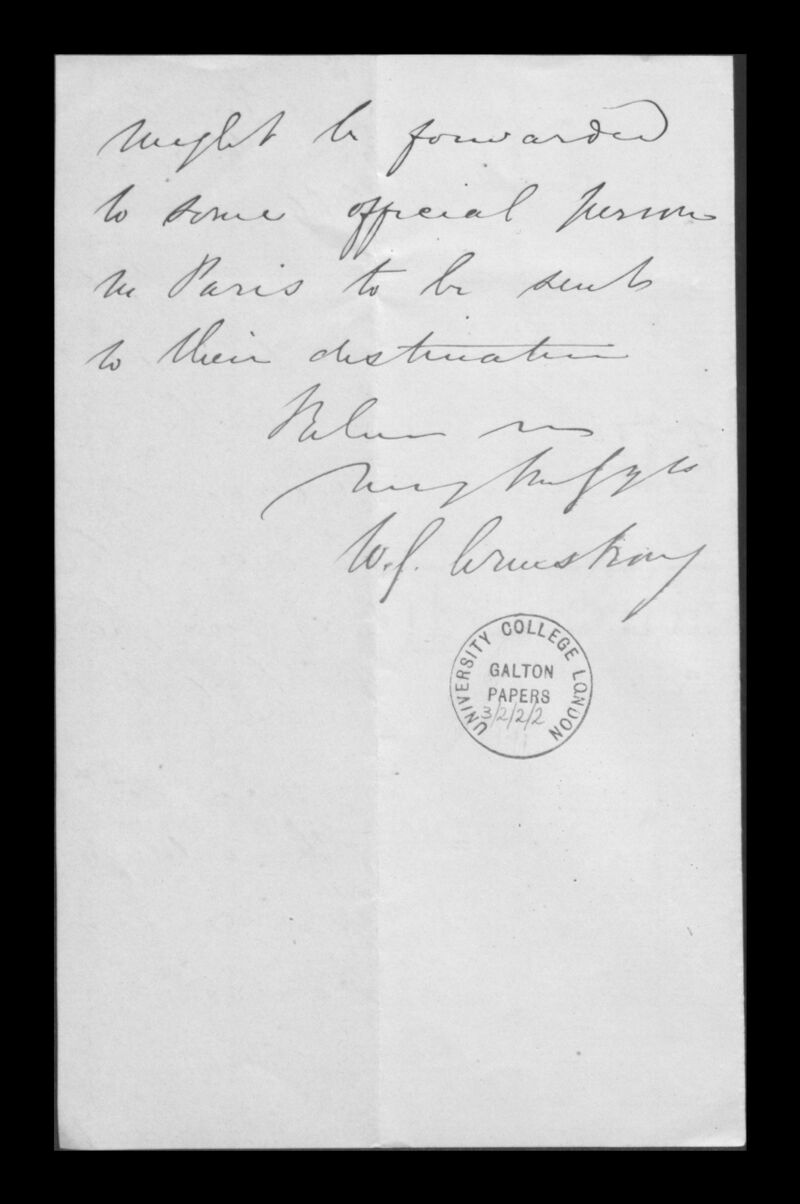 might be forwarded
to some official person
in Paris to be sent
to their destination
Believe me
very truly yrs
W.G. Armstrong
UNIVERSITY COLLEGE LONDON
GALTON
PAPERS
3/2/2/2